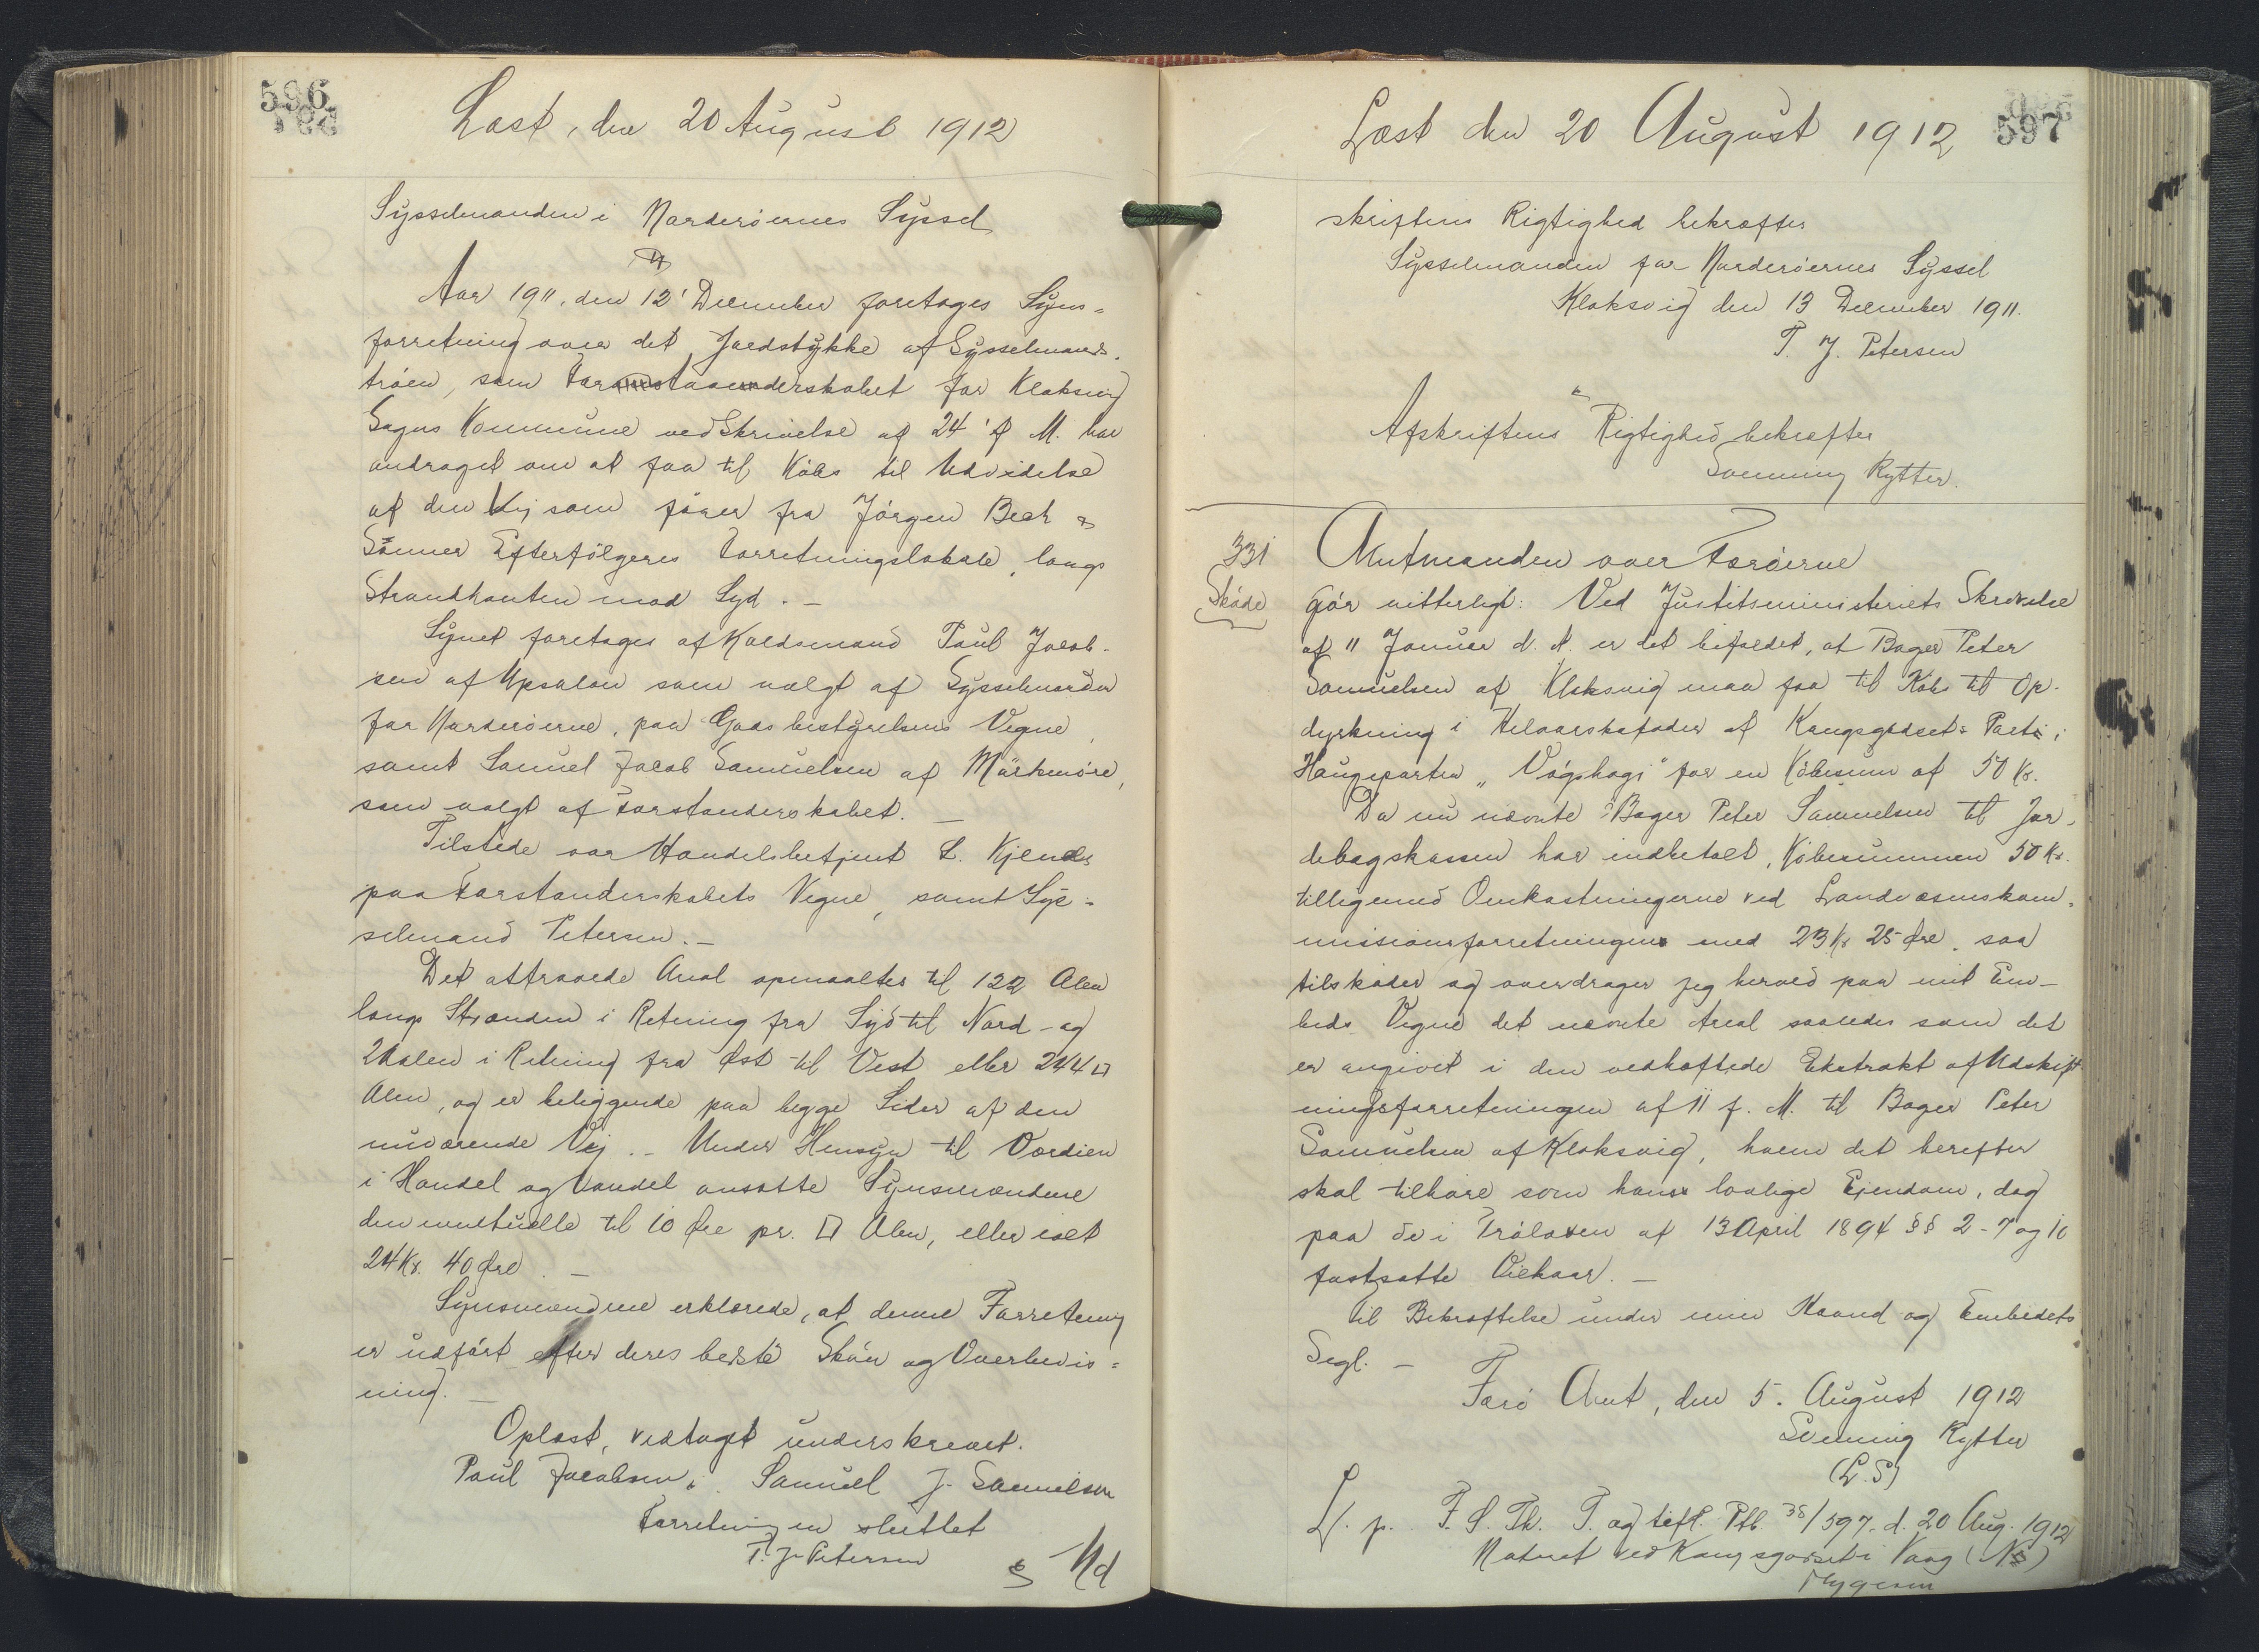 596
Læst, den 20 August 1912
Sysselmanden i Norderøernes Syssel
Aar 1911, den 12' December foretoges Syns-
forretning over det Jordstykke af Sysselmands-
trøen, som Forstanderskabet for Klaksvig
Sogns Kommune ved Skrivelse af 24' f. M. har
andraget om at faa til Købs til Udvidelse
af den Vej som fører fra Jørgen Bech &
Sønner Efterfølgeres Forretningslokale, langs
Strandkanten mod Syd. -
Synet foretoges af Kaldsmand Poul Jacob-
sen af Upsalon som valgt af Sysselmanden
for Norderøerne, paa Godsbestyrelsens Vegne,
samt Samuel Jacob Samuelsen af Mürkenøre,
som valgt af Forstanderskabet. -
Tilstede var Handelsbetjent L. Kjends
paa Forstanderskabets Vegne, samt Sys-
selmand Petersen. -
Det attraaede Areal opmaaltes til 122 Alen
langs Stranden i Retning fra Syd til Nord - og
2 Alen i Retning fra Øst til Vest eller 244 □
Alen, og er beliggende paa begge Sider af den
nuværende Vej. - Under Hensyn til Værdien
i Handel og Vandel ansatte Synsmændene
den eventuelle til 10 Øre pr. □ Alen, eller ialt
24 Kr. 40 Øre. -
Synsmændene erklærede, at denne Forretning
er udført efter deres bedste Skøn og Overbevis-
ning. -
Oplæst, vedtaget underskrevet.
Poul Jacobsen, Samuel J. Samuelsen
Forretningen sluttet
T. J. Petersen
Ud
597
Læst den 20 August 1912
skriftens Rigtighed bekræftes
Sysselmanden for Norderøernes Syssel
Klaksvig den 13 December 1911.
T. J. Petersen
Afskriftens Rigtighed bekræfter
Svenning Rytter.
331
Skøde
Amtmanden over Færøerne
Gør vitterligt: Ved Justitsministeriets Skrivelse
af 11 Januar d. A. er det bifaldet, at Bager Peter
Samuelsen af Klaksvig maa faa til Købs til Op-
dyrkning i Helaarskafoder af Kongsgodsets Part i
Haugeparten "Vágshagi" for en Købesum af 50 Kr.
Da nu nævnte Bager Peter Samuelsen til Jor-
debogskassen har indbetalt Købesummen 50 Kr.
tilligemed Omkostningerne ved Landvæsenskom-
missionsforretningen med 23 Kr 25 Øre, saa
tilskøder og overdrager jeg herved paa mit Em-
beds Vegne det nævnte Areal saaledes som det
er angivet i den vedhæftede Ekstrakt af Udskift-
ningsforretningen af 11 f. M. til Bager Peter
Samuelsen af Klaksvig, hvem det herefter
skal tilhøre som hans lovlige Ejendom, dog
paa de i Trøloven af 13 April 1894 §§ 2-7 og 10
fastsatte Vilkaar. -
Til Bekræftelse under min Haand og Embedets
Segl. -
Færø Amt, den 5. August 1912
Svenning Rytter
(L.S)
L. p. F. S. Th. T. og tilfl. Ptb. 38/597. d. 20 Aug. 1912
Noteret ved Kongsgodset i Vaag (N )